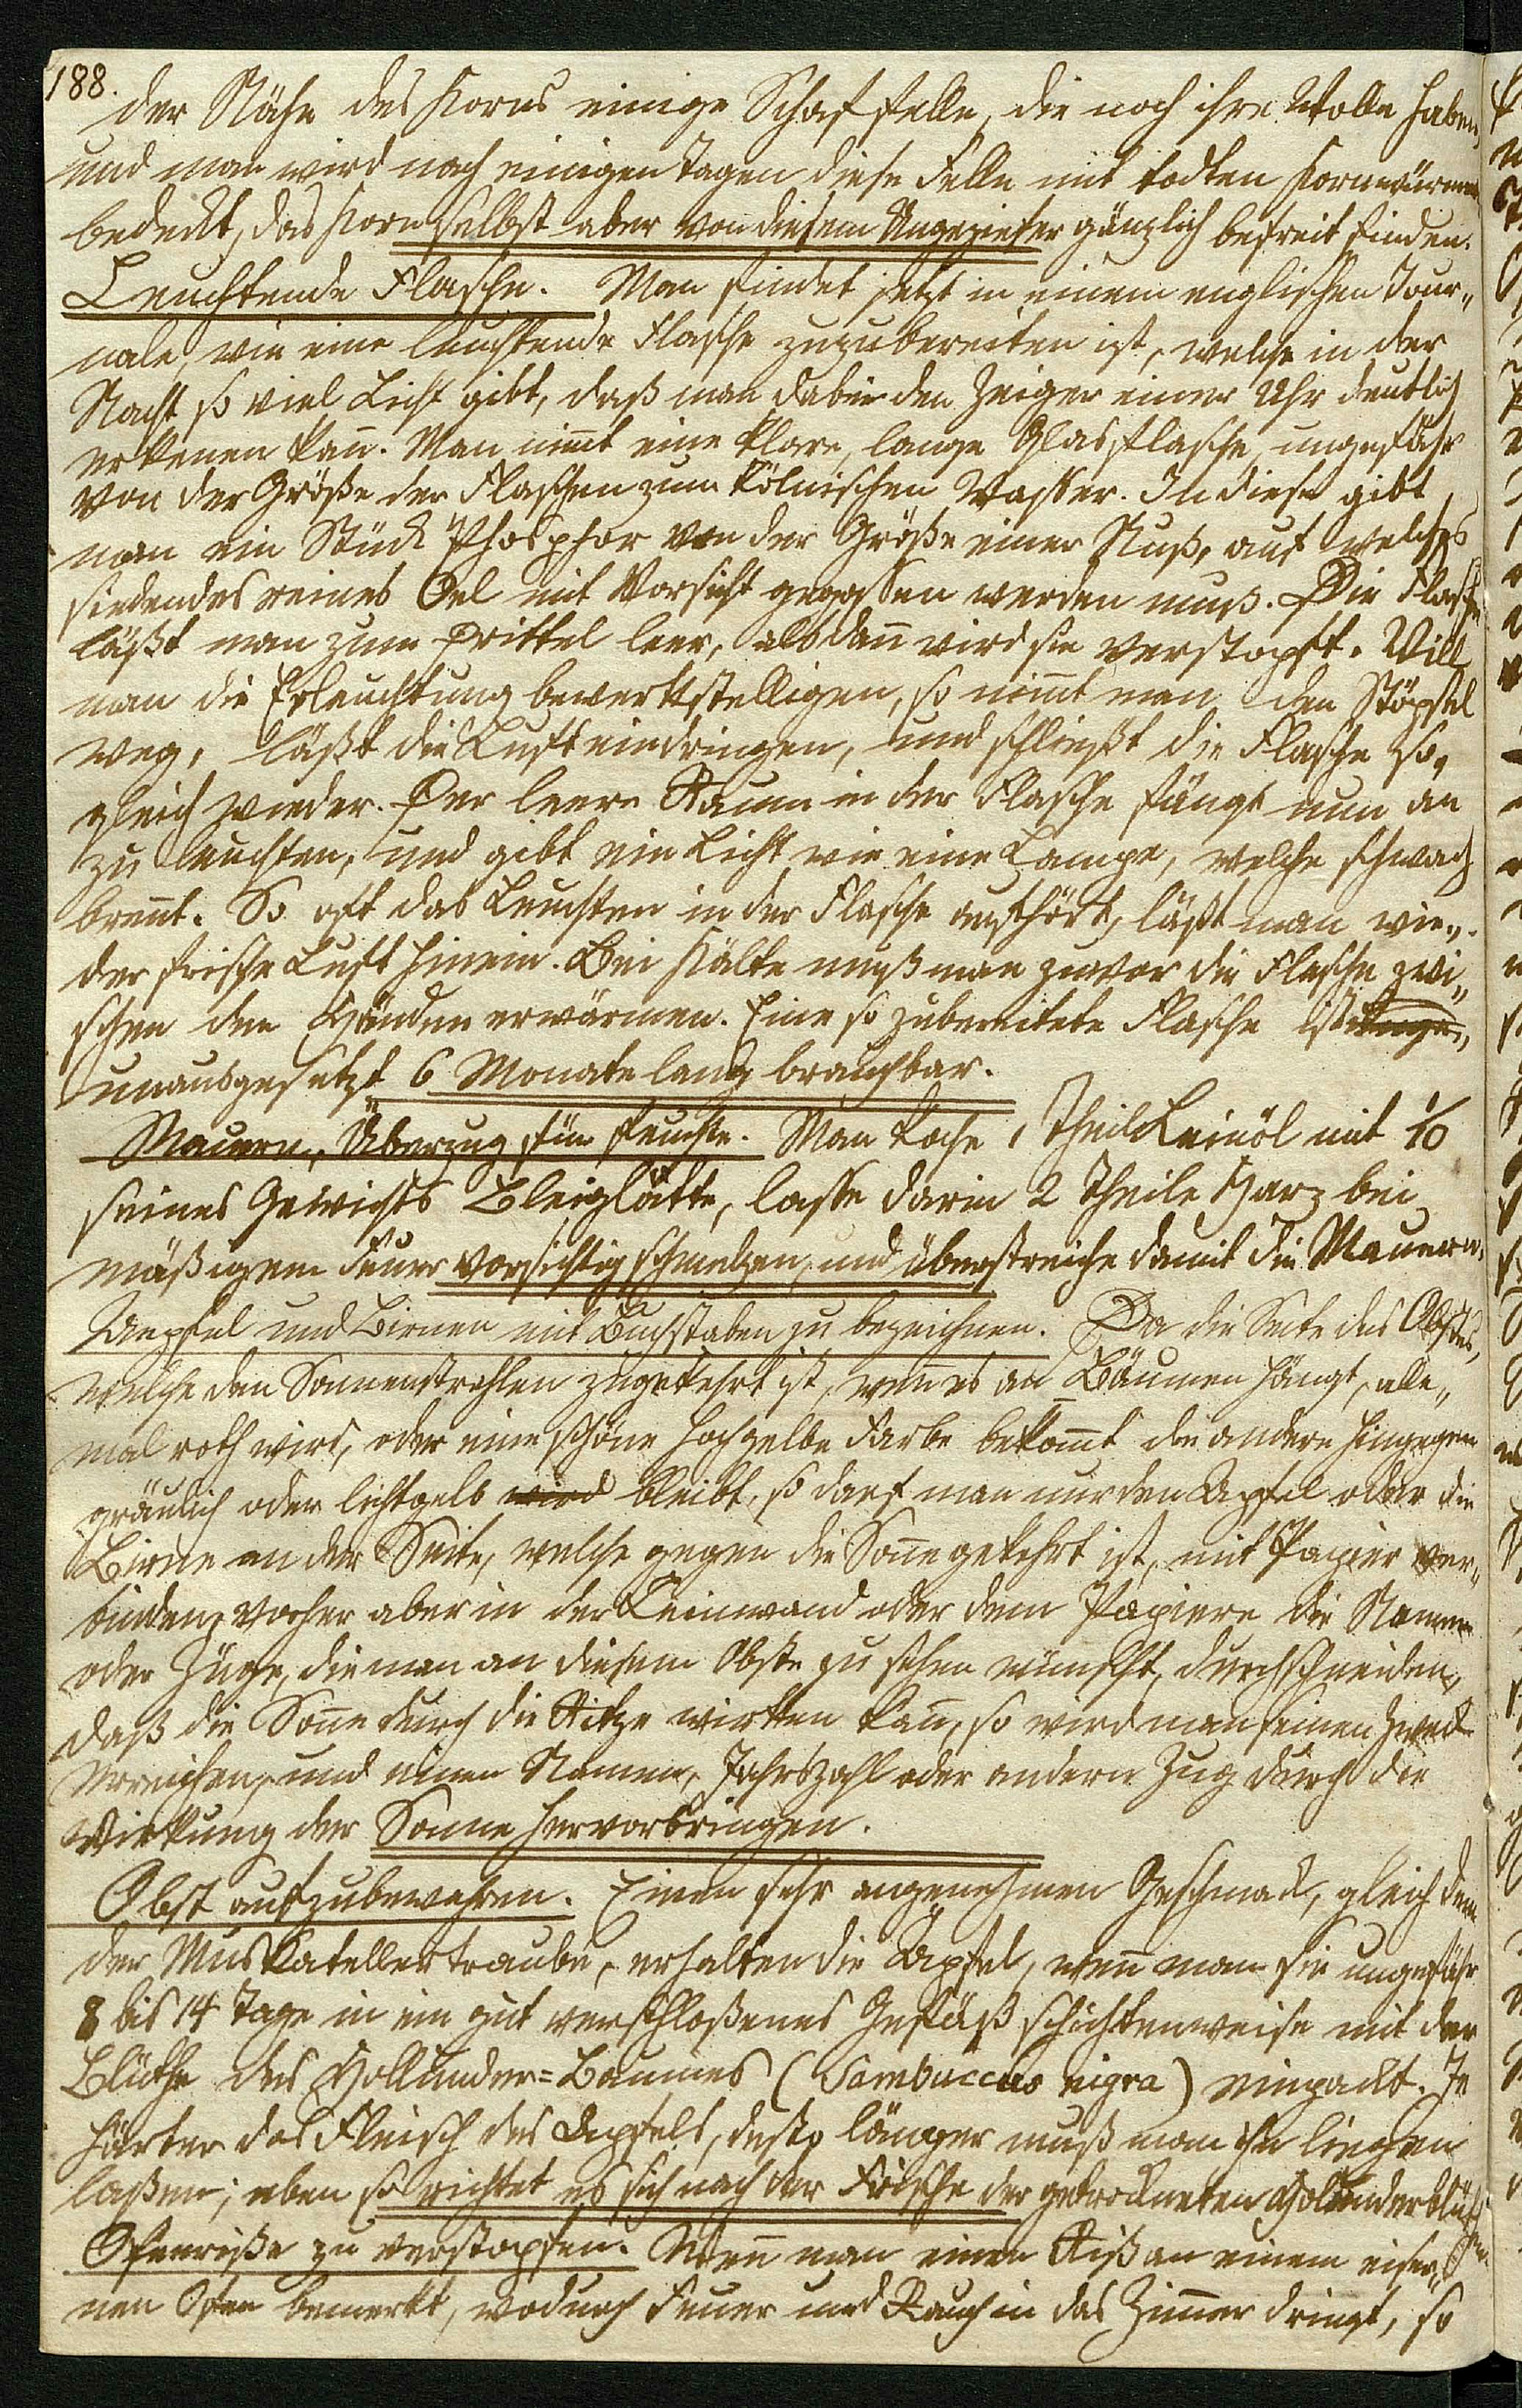 188.
der Nähe des Korns einige Schaffelle, die noch ihre Wolle haben,
und man wird nach einigen Tagen diese Felle mit todten Kornwürmern
bedeckt, das Korn selbst aber von diesem Ungeziefer gänzlich befreit finden.
Leuchtende Flasche. Man findet jetzt in einem englischen Jour„
nale, wie eine leuchtende Flasche zuzubereiten ist, welche in der
Nacht so viel Licht gibt, daß man dabei den Zeiger einer Uhr deutlich
erkenen kan̄. Man nim̄t eine klare, lange Glasflasche, ungefähr
von der Größe der Flaschen zum kölnischen Wasser. In diese gibt
man ein Stück Phosphor von der Größe einer Nuß, auf welches
siedendes reines Oel mit Vorsicht gegossen werden muß. Die Flasche
läßt man zum Drittel leer, alsdan̄ wird sie verstopft. Will
man die Erleuchtung bewerkstelligen, so nim̄t man den Stöpsel
weg, läßt die Luft eindringen, und schließt die Flasche so„
gleich wieder. Der leere Raum in der Flasche fängt nun an
zu leuchten, und gibt ein Licht wie eine Lampe, welche schwach
bren̄t. So oft das Leuchten in der Flasche aufhört, läßt man wie„
der frische Luft hinein. Bei Kälte muß man zuvor die Flasche zwi„
schen den Händen erwärmen. Eine so zubereitete Flasche ist
unausgesetzt 6 Monate lang brauchbar.
Mauern, Überzug für feuchte. Man koche 1 Theil Leinöl mit 1/10
seines Gewichts Bleiglätte, lasse darin 2 Theile Harz bei
mäßigem Feuer vorsichtig schmelzen, und überstreiche damit die Mauern.
Aepfel und Birnen mit Buchstaben zu bezeichnen. Da die Seite des Obstes,
welche den Sonnenstrahlen zugekehrt ist, wen̄ es an Bäumen hängt, alle„
mal roth wird, oder eine schöne hochgelbe Farbe bekom̄t die andere hingegen
gräulich oder lichtgelb wird bleibt, so darf man nur den Apfel oder die
Birne an der Seite, welche gegen die Son̄e gekehrt ist, mit Papier ver„
binden, vorher aber in der Leinwand oder dem Papiere die Namen
oder Züge, die man an diesem Obste zu sehen wünscht, durchschneiden,
daß die Son̄e durch die Ritze wirken kan̄, so wird man seinen Zweck
erreichen, und einen Namen, Jahrszahl oder andern Zug durch die
Wirkung der Sonne hervorbringen.
Obst aufzubewahren. Einen sehr angenehmen Geschmack, gleich dem
der Muskatellertraube, erhalten die Äpfel, wen̄ man sie ungefähr
8 bis 14 Tage in ein gut verschloßenes Gefäß schichtenweise mit der
Blüthe des Hollunder=Baumes (Sambuccus nigra) einpackt. Je
härter das Fleisch des Apfels, desto länger muß man ihn liegen
laßen; eben so richtet es sich nach der Frische der getrockneten Holunderblüthen.
Ofenriße zu verstopfen. Wen̄ man einen Riß an einem eiser„
nen Ofen bemerkt, wodurch Feuer und Rauch in das Zim̄er dringt, so